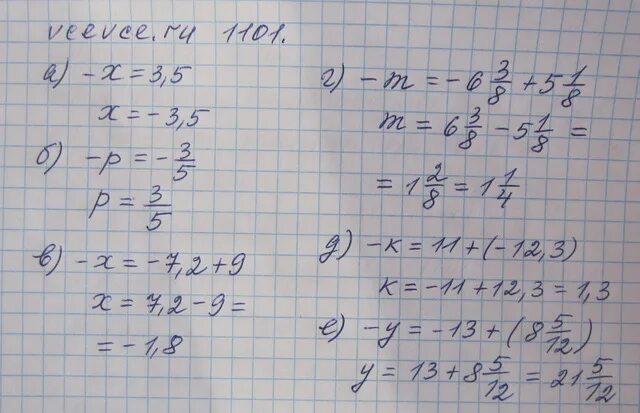 vcevce.ru 1101.
а) -x = 3,5
x = -3,5
б) -p = -3/5
p = 3/5
в) -x = -7,2+9
x = 7,2-9=
= -1,8
г) -m = -6 3/8 + 5 1/8
m = 6 3/8 - 5 1/8 =
= 1 2/8 = 1 1/4
д) -к = 11 + (-12,3)
к = -11 + 12,3 = 1,3
е) -y = -13 + (8 5/12)
y = 13 + 8 5/12 = 21 5/12